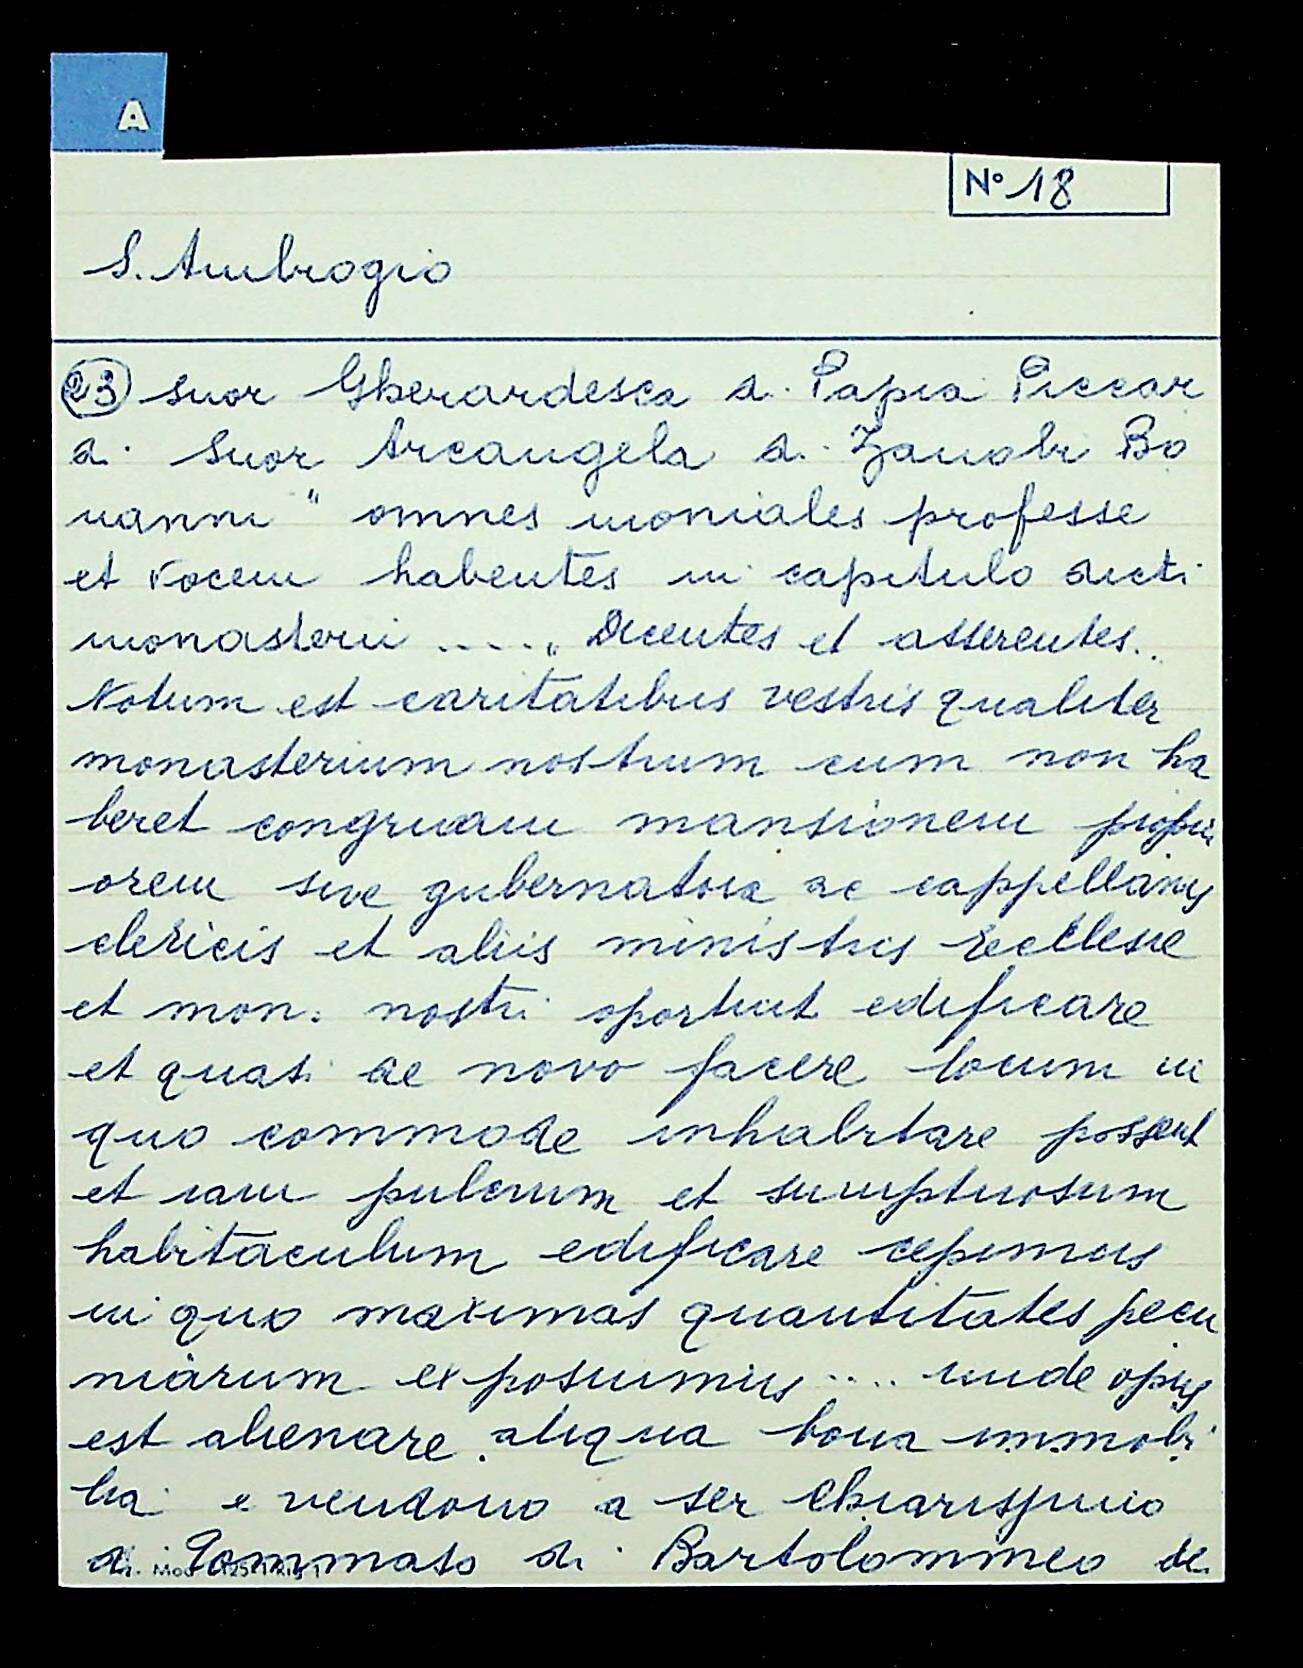 A
N° 18
S. Ambrogio
23 suor Gherardesca di Papia Piccar
di Suor Arcangela di Zanobi Bo
nanni " omnes moniales professe
et vocem habentes in capitulo dicti
monasterii ..... Dicentes et asserentes..
Notum est caritatibus vestris qualiter
monasterium nostrum cum non ha
beret congruam mansionem
orem sive gubernatori ac cappellanis
clericis et aliis ministris Ecclesie
et mon. nostri oportuit edificare
et quasi de novo facere locum in
quo commode inhabitare possent
et iam pulcrum et sumptuosum
habitaculum edificare cepimus
in quo maximas quantitates pecu
niarum exposuimus .... unde opus
est alienare aliqua bona immobi
lia e vendono a ser
di Tommaso di Bartolommeo de